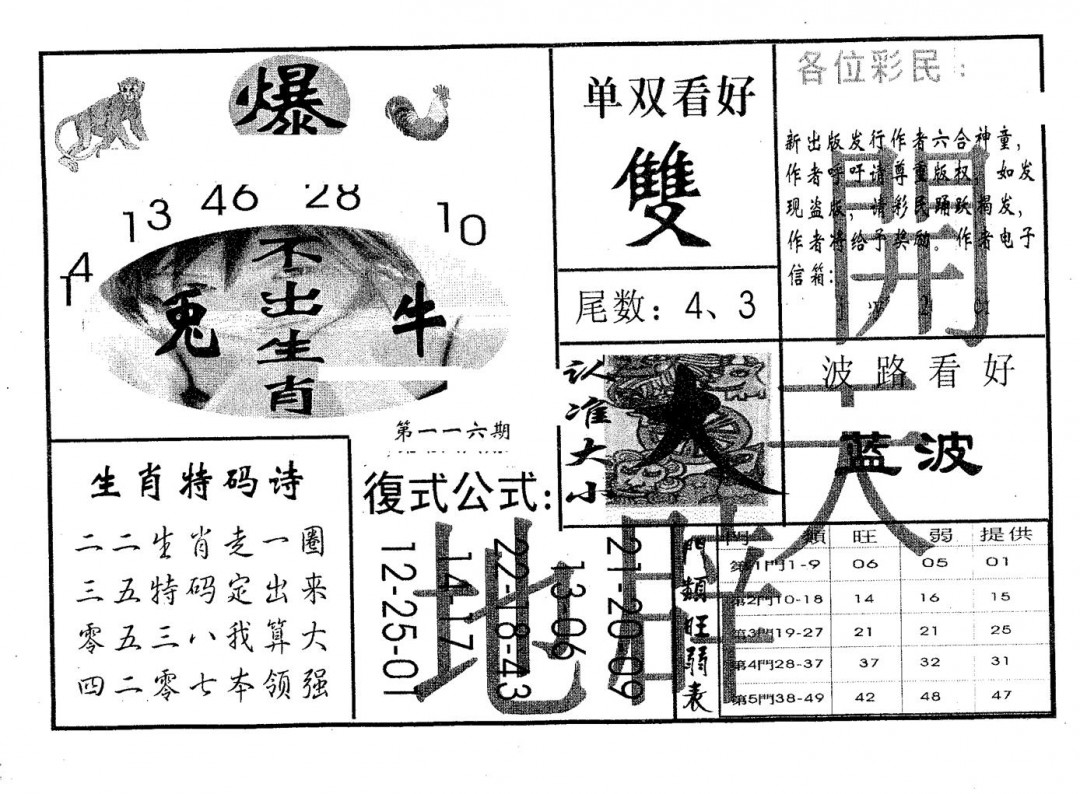 爆
14
13
46
28
10
不出生肖
兎
牛
第一一六期
单双看好
雙
尾数：4、3
各位彩民：
新出版发行作者六合神童，
作者呼吁请尊重版权，如发
现盗版，请彩民踊跃揭发，
作者将给予奖励。作者电子
信箱：
開
认准大小
大
波路看好
蓝波
天
生肖特码诗
二二生肖走一圈
三五特码定出来
零五三八我算大
四二零七本领强
復式公式：
21-20-09
13-06
22-18-43
14-17
12-25-01
地
門類旺弱表
門類 旺 弱 提供
第1門1-9 06 05 01
第2門10-18 14 16 15
第3門19-27 21 21 25
第4門28-37 37 32 31
第5門38-49 42 48 47